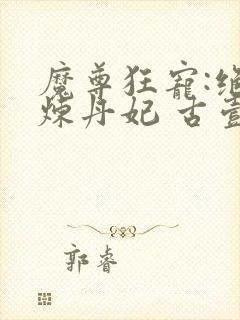 魔尊狂寵:
煉丹妃 古
郭睿